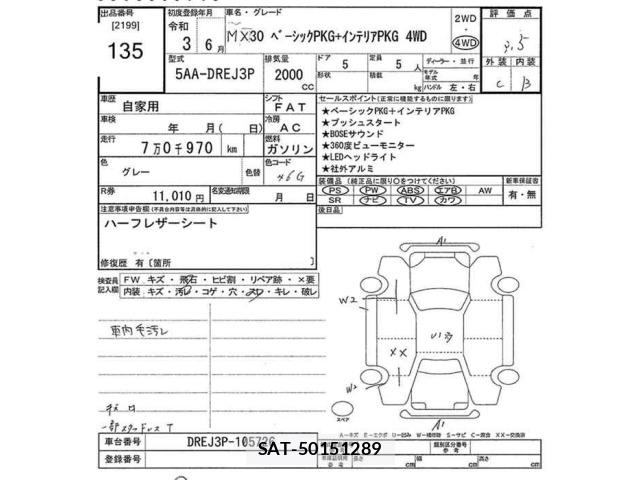 出品番号
[2199]
135
初度登録年月
令和
3 年 6 月
車名・グレード
MX30 ベーシックPKG+インテリアPKG 4WD
2WD
・
4WD
評価点
3.5
外装 内装
C B
型式
5AA-DREJ3P
排気量
2000
cc
ドア 5
形状
定員 5 人
積載
kg
ディーラー・並行
モデル年式 年
ハンドル 左・右
車歴
自家用
シフト
FAT
車検
年 月( 日)
冷房
AC
走行
7万0千970 km
燃料
ガソリン
色
グレー
色替
色コード
46G
R券
11,010 円
名変通知期限
月 日
セールスポイント(正常に機能するものに限ります)
★ベーシックPKG+インテリアPKG
★プッシュスタート
★BOSEサウンド
★360度ビューモニター
★LEDヘッドライト
★社外アルミ
装備品(純正品に限り○をつけてください)
PS PW ABS エアB AW
SR ナビ TV カワ
新車保証書
有・無
後日品
注意事項申告欄(不具合内容等は具体的に記入して下さい)
ハーフレザーシート
修復歴 有〔箇所 〕
検査員
記入欄
FW.キズ・飛石・ヒビ割・リペア跡・×要
内装.キズ・汚レ・コゲ・穴・スレ・キレ・破レ
車内毛汚レ
キズ 口
一部スタッドレス T
A1
W2
XX
W2
A1
スペア
A-キズ E-エクボ U-凹み W-補修跡 S-サビ C-腐食 XX-交換済
車台番号
DREJ3P-105726
登録番号
類別区分番号
参考
長さ cm
幅 cm
高さ cm
SAT-50151289